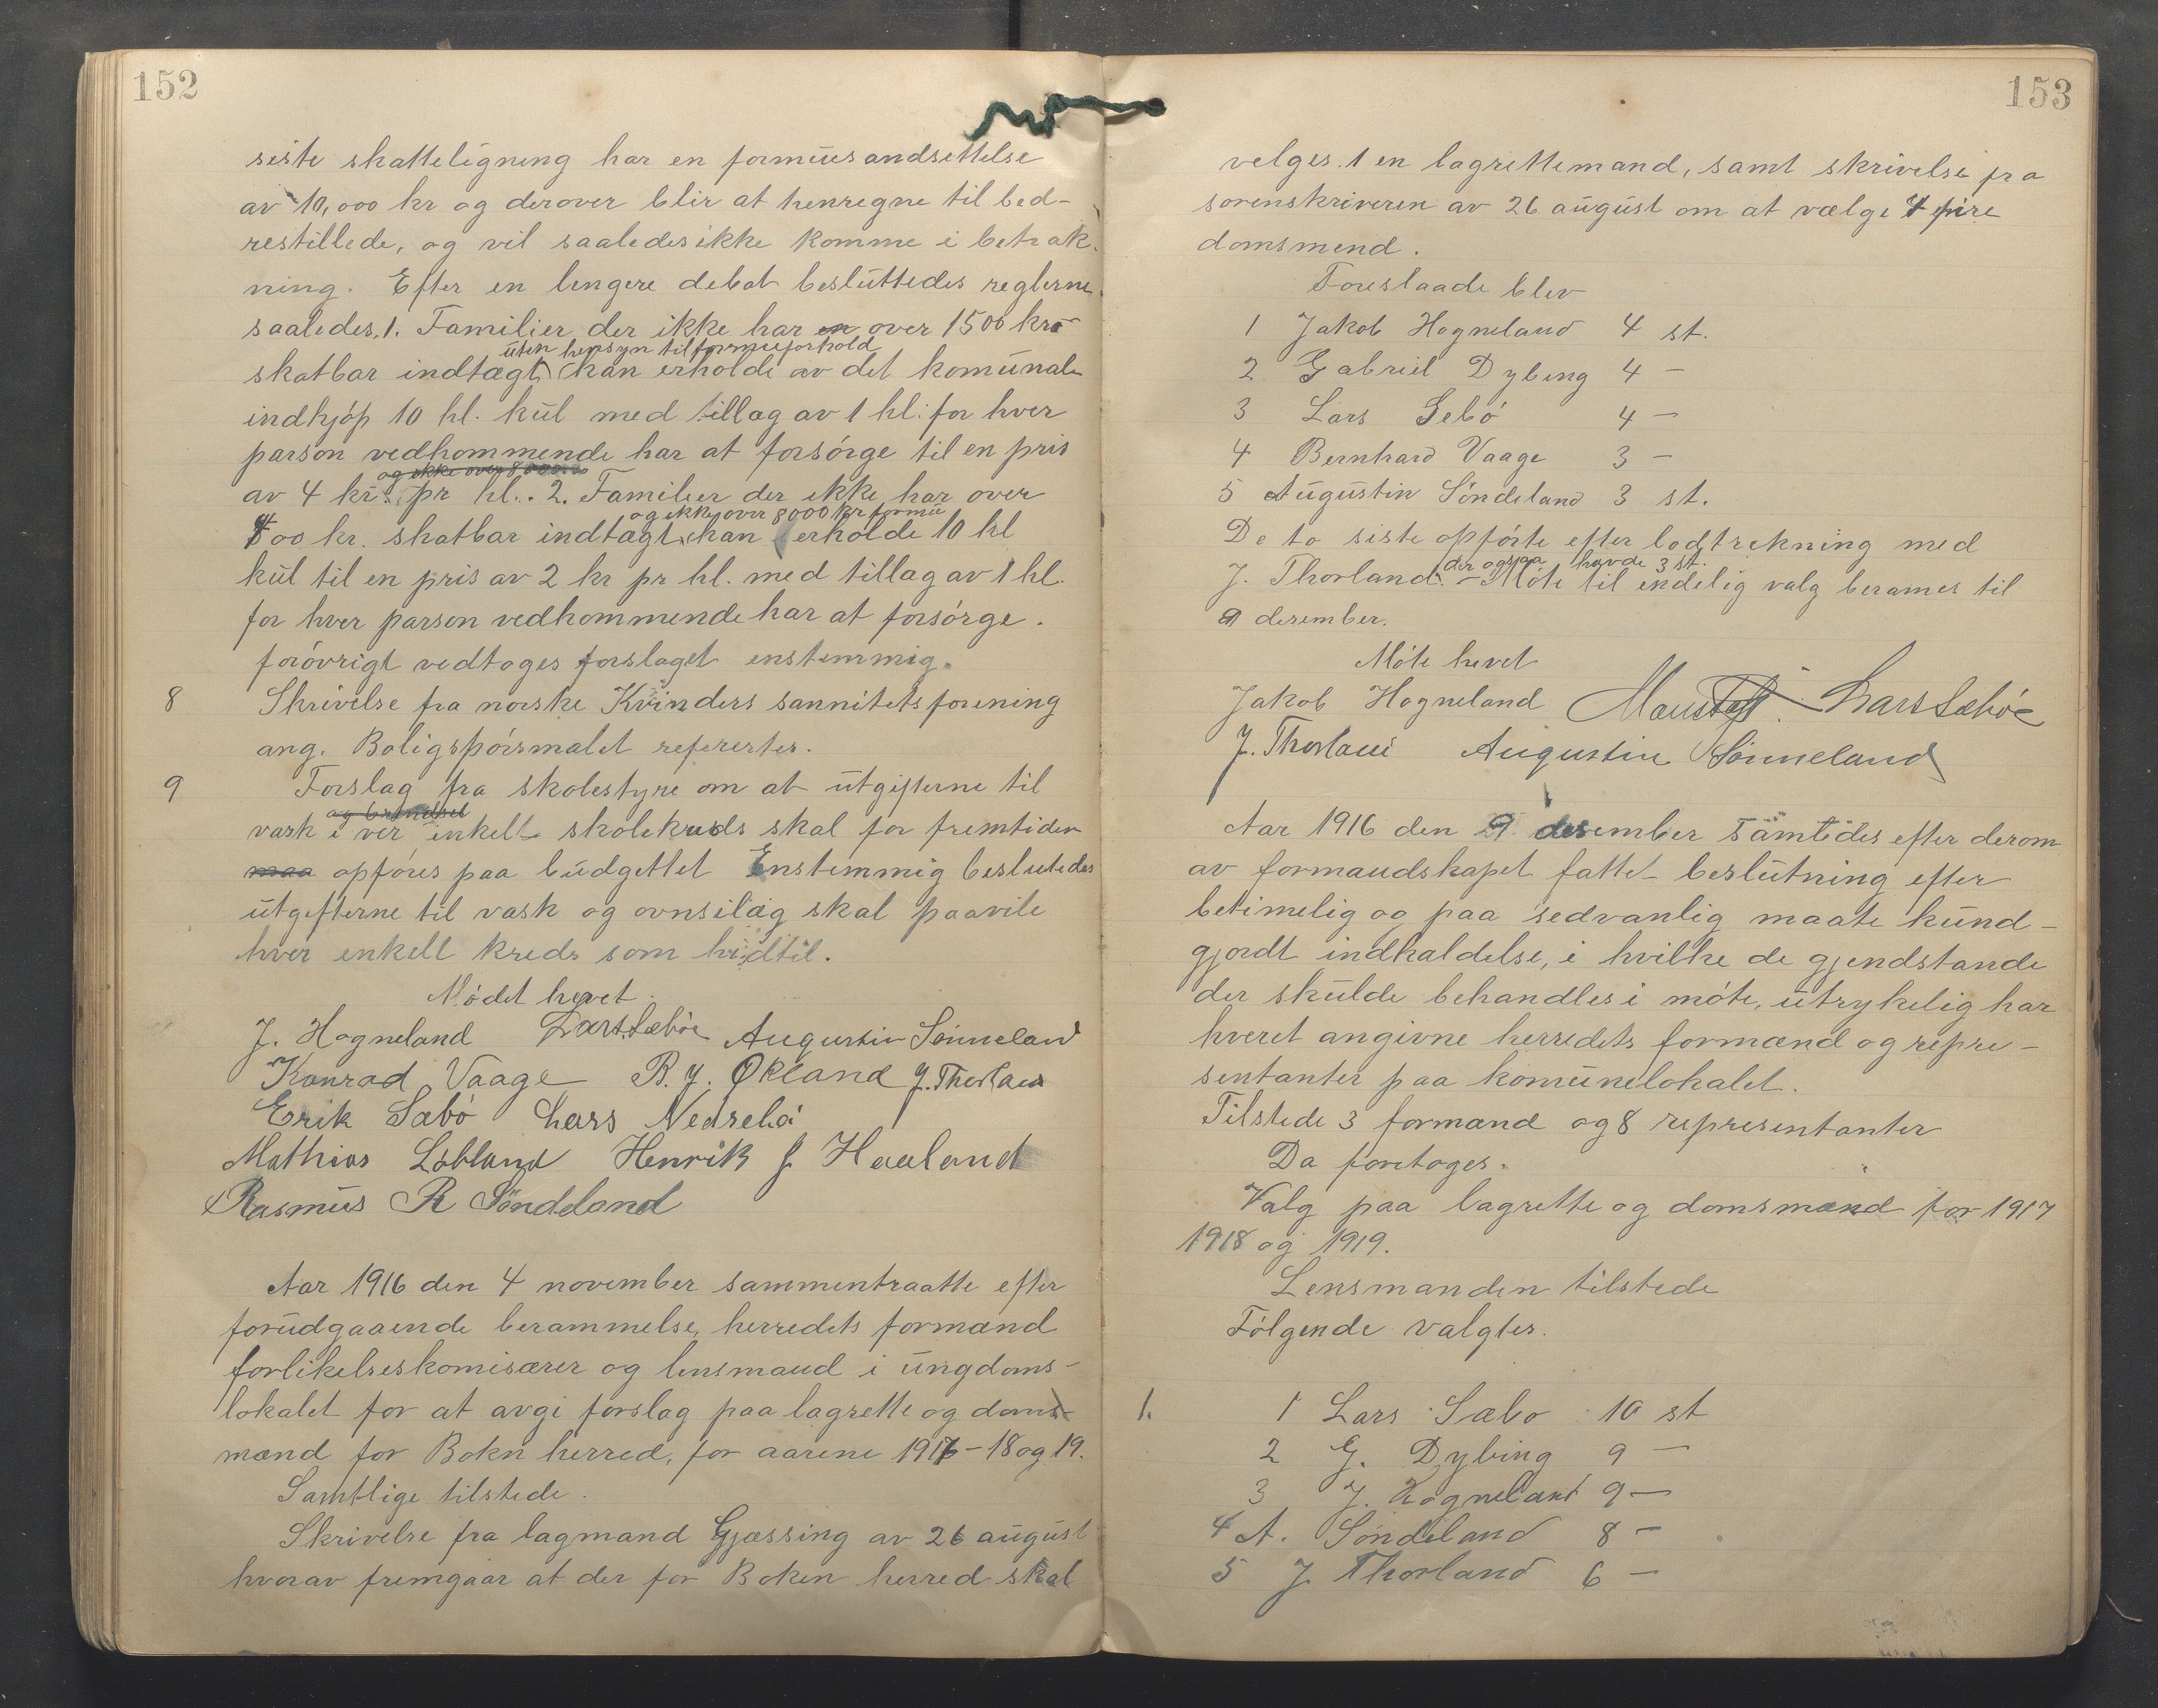 152
siste skatteligning har en formuesandsettelse
av 10,000 kr og derover blir at henregne til bed-
restillede, og vil saaledes ikke komme i betrak-
ning. Efter en lengere debat besluttedes reglerne
saaledes, 1. Familier der ikke har en over 1500 kr
uten hensyn til formueforhold
skatbar indtægt kan erholde av det komunale
indkjóp 10 hl. kul med tillæg av 1 hl. for hver
parson vedkommende har at forsórge til en pris
og ikke over 8000
av 4 kr. pr hl.. 2. Familier der ikke har over
og ikke over 8000 kr formu
700 kr. skatbar indtægt kan erholde 10 hl
kul til en pris av 2 kr pr hl. med tillag av 1 hl.
for hver parson vedkommende har at forsórge.
foróvrigt vedtoges forslaget enstemmig.
8 Skrivelse fra norske Kvinders sannitetsforening
ang. Boligspórsmalet refererter.
9 Forslag fra skolestyre om at utgifterne til
og brendsel
vask i ver enkelt skolekreds skal for fremtiden
maa opfóres paa budgettet Enstemmig beslutedes
utgefterne til vask og ovnsilæg skal paavile
hver enkelt kreds som hidtil.
Módet hevet.
J. Hogneland Lars Sæbóe Augustin Sónneland
Konrad Vaage B. J. Økland J. Thorland
Erik Sæbó Lars Nedrebó
Mathias Lóbland Henrik J. Haaland
Rasmus R Sóndeland
Aar 1916 den 4 november sammentraatte efter
forudgaaende berammelse, herredets formænd
forlikelseskomisærer og lensmand i ungdoms-
lokalet for at avgi forslag paa lagrette og doms-
mænd for Bokn herred, for aarene 1917-18 og 19.
Samtlige tilstede.
Skrivelse fra lagmand Gjæssing av 26 august
hvorav fremgaar at der for Boken herred skal
153
velges 1 en lagrettemand, samt skrivelse fra
sorenskriveren av 26 august om at vælge 4 fire
domsmend.
Foreslaade blev
1 Jakob Hogneland 4 st.
2 Gabriel Dybing 4 -
3 Lars Sebó 4 -
4 Bernhard Vaage 3 -
5 Augustin Sóndeland 3 st.
De to siste opfórte efter lodtrekning med
der ogsaa havde 3 st.
J. Thorland. - Móte til endelig valg berames til
9 desember.
Móte hevet
Jakob Hogneland Lars Sæbóe
J. Thorland Augustin Sónneland
Aar 1916 den 9 desember samtedes efter derom
av formandskapet fattet beslutning efter
betimelig og paa sedvanlig maate kund-
gjordt indkaldelse, i hvilke de gjendstande
der skulde behandles i móte, utrykelig har
hveret angivne herredets formænd og repre-
sentanter paa komunelokalet.
Tilstede 3 formænd og 8 representanter
Da foretoges.
Valg paa lagrette og domsmænd for 1917
1918 og 1919.
Lensmanden tilstede
Fólgende valgtes.
1. 1 Lars Sæbo 10 st
2 G. Dybing 9 -
3 J. Hogneland 9 -
4 A. Sóndeland 8 -
5 J Thorland 6 -